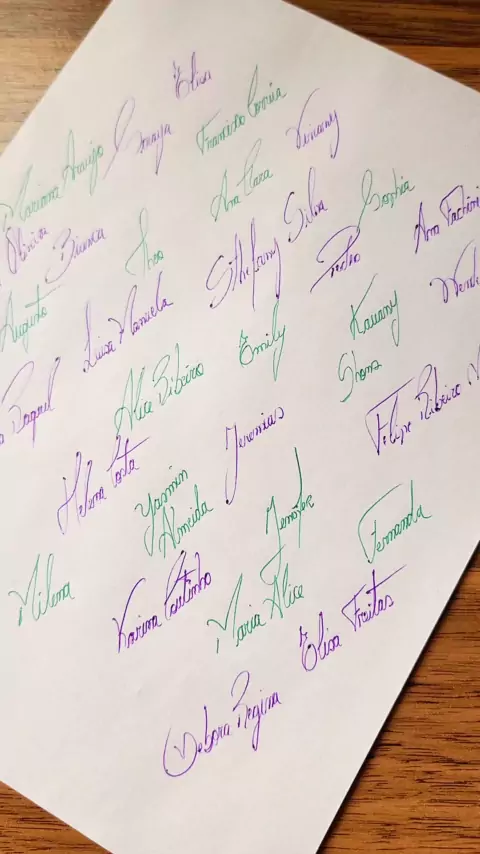 Elisa
Mariana Araujo
Soraya
Francisco Correia
Olivia
Bianca
Theo
Ana Clara
Viviany
Augusto
Luisa Manuela
Sthefany Silva
Pedro
Sophia
Ana
Raquel
Alice Ribeiro
Emily
Kauany
Helena Costa
Jeremias
Felipe Ribeiro
Yasmin
Almeida
Jennifer
Fernanda
Milena
Karina Coutinho
Maria Alice
Elisa Freitas
Debora Regina